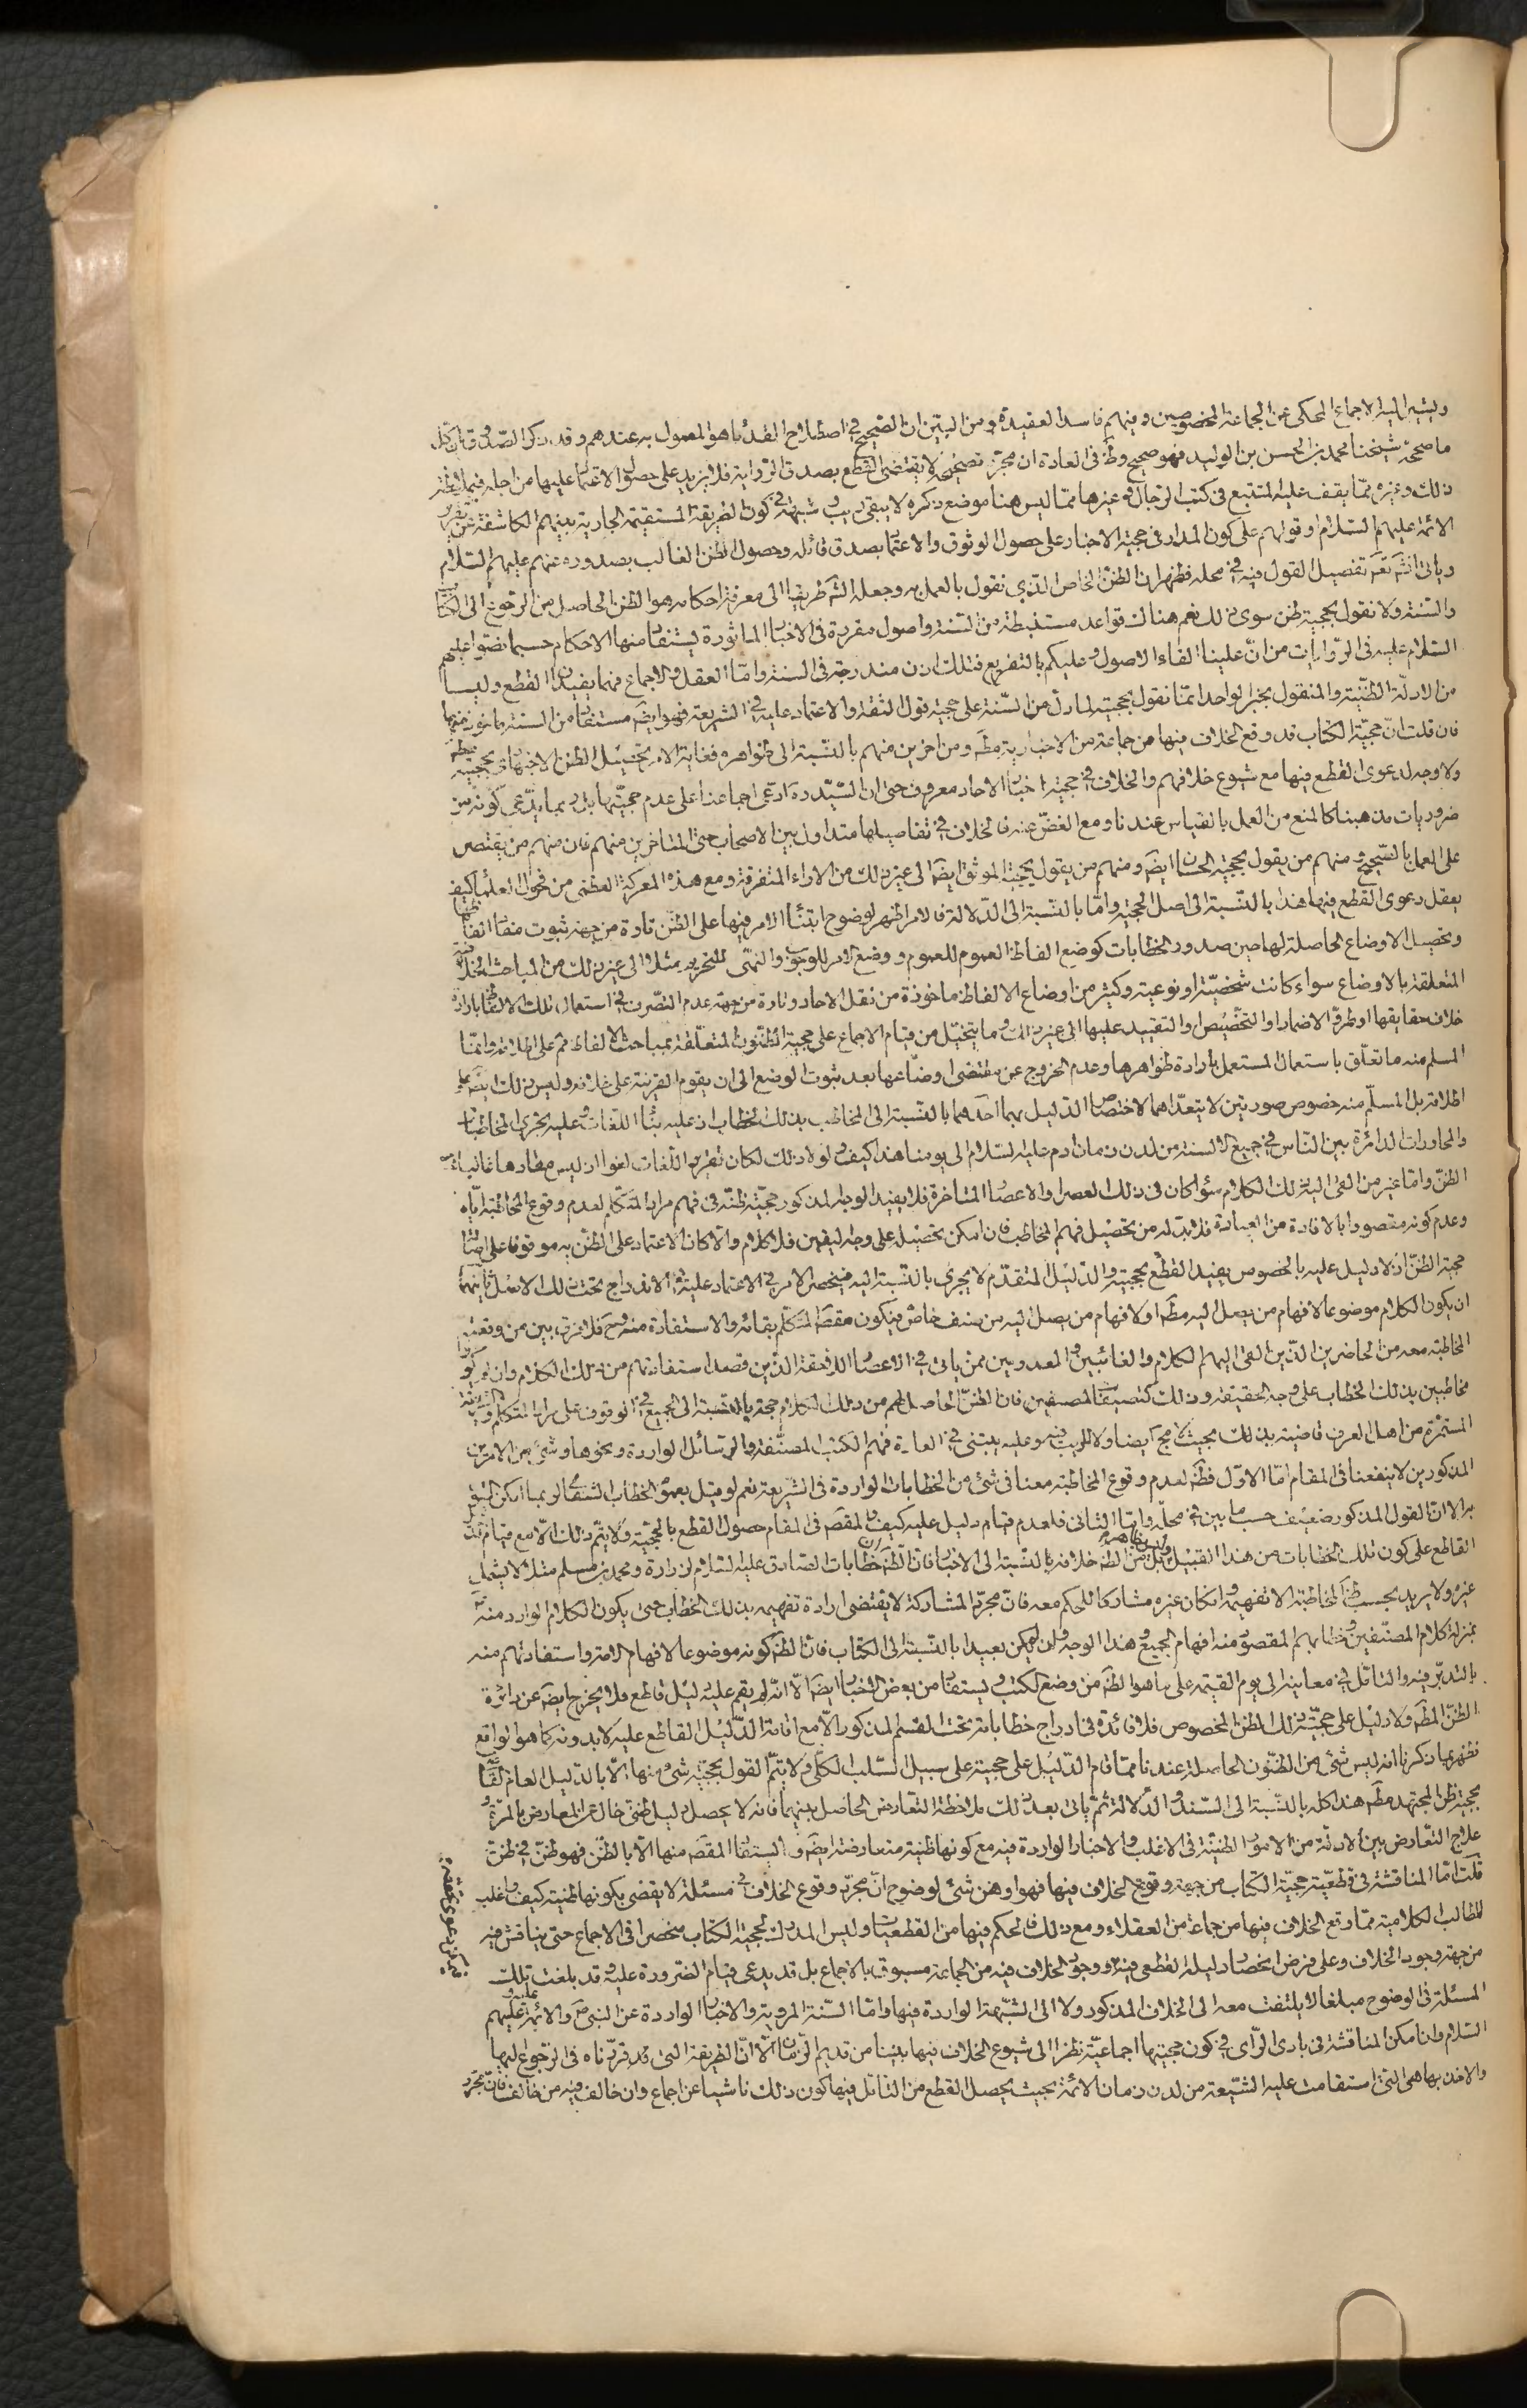 ويشير اليه الاجماع المحكى عن الجماعة المخصوصين ومنهم فاسد العقيدة ومن البين ان الصحيح في اصطلاح القدماء هو المعمول به عندهم وقد ذكر الصدوق ان كل
ما صححه شيخنا محمد بن الحسن بن الوليد فهو صحيح وظ فى العادة ان مجرد تصحيحه لا يقتضى القطع بصدق الرواية فلا يزيد على حصول الاعتماد عليها من اجله فيما يظهر
ذلك وغيره مما يقف عليه المتتبع فى كتب الرجال وغيرها مما ليس هنا موضع ذكره لا يبقى ريب وشبهة في كون الطريقة المستقيمة الجارية بينهم الكاشفة عن تقرير
الائمة عليهم السلام وقولهم على كون المدار فى حجية الاخبار على حصول الوثوق والاعتماد بصدق قائله وحصول الظن الغالب بصدوره عنهم عليهم السلام
وياتى انشه تعم تفصيل القول فيه في محله فظهر ان الظن الخاص الذي نقول بالعمل به وجعله الشه طريقا الى معرفة احكامه هو الظن الحاصل من الرجوع الى الكتاب
والسنة ولا نقول بحجية ظن سوى ذلك نعم هناك قواعد مستنبطة من السنة واصول مقررة فى الاخبار الماثورة يستفاد منها الاحكام حسبما نصوا عليهم
السلام عليه فى الروايات من ان علينا القاء الاصول وعليكم بالتفريع فتلك اذن مندرجة فى السنة واما العقل والاجماع فهما يفيدان القطع وليسا
من الادلة الظنية والمنقول بخبر الواحد انما نقول بحجيته لما دل من السنة على حجية قول الثقة والاعتماد عليه في الشريعة فهو ايضه مستفاد من السنة ماخوذ منها
فان قلت ان حجية الكتاب قد وقع الخلاف فيها من جماعة من الاخبارية مطه ومن اخرين منهم بالنسبة الى ظواهره فغاية الامر تحصيل الظن الاجتهادى بحجيته مطه
ولا وجه لدعوى القطع فيها مع شيوع خلافهم والخلاف في حجية اخبار الاحاد معروف حتى ان السيد ره ادعى اجماعنا على عدم حجيتها بل ربما يدعى كونه من
ضروريات مذهبنا كالمنع من العمل بالقياس عندنا ومع الغض عنه فالخلاف في تفاصيلها متداول بين الاصحاب حتى المتاخرين منهم فان منهم من يقتصر
على العمل بالصحيح ومنهم من يقول بحجية الحسان ايضه ومنهم من يقول بحجية الموثق ايضه الى غير ذلك من الاراء المتفرقة ومع هذه المعركة العظمى من فحول العلماء كيف
يعقل دعوى القطع فيها هذا بالنسبة الى اصل الحجية واما بالنسبة الى الدلالة فالامر اظهر لوضوح ابتناء الامر فيها على الظن تارة من جهة ثبوت مفاد الفاظها
وتحصيل الاوضاع الحاصلة لها حين صدور الخطابات كوضع الفاظ العموم للعموم ووضع الامر للوجوب والنهى للتحريم مثلا الى غير ذلك من المباحث المختلفة
المتعلقة بالاوضاع سواء كانت شخصية او نوعية وكثير من اوضاع الالفاظ ماخوذة من نقل الاحاد وتارة من جهة عدم التصرف في استعمال تلك الالفاظ بارادة
خلاف حقايقها او طرو الاضمار او التخصيص او التقييد عليها الى غير ذلك وما يتخيل من قيام الاجماع على حجية الظنون المتعلقة بمباحث الالفاظ فم على اطلاقه وانما
المسلم منه ما تعلق باستعمال المستعمل بارادة ظواهرها وعدم الخروج عن مقتضى اوضاعها بعد ثبوت الوضع الى ان يقوم القرينة على خلافه وليس ذلك ايضه على
اطلاقه بل المسلم منه خصوص صورتين لا يتعداهما لاختصاص الدليل بهما احدهما بالنسبة الى المخاطب بذلك الخطاب اذ عليه بناء اللغات وعليه تجرى المخاطبات
والمحاورات الدائرة بين الناس في جميع الالسنة من لدن زمان ادم عليه السلام الى يومنا هذا كيف ولولا ذلك لكان تقرير اللغات لغوا اذ ليس مفادها غالبا سوى
الظن واما غير من القى اليه ذلك الكلام سواء كان فى ذلك العصر او الاعصار المتاخرة فلا يفيد الوجه المذكور حجية ظنه فى فهم مراد المتكلم لعدم وقوع المخاطبة اياه
وعدم كونه مقصودا بالافادة من العبارة فلا بد له من تحصيل فهم المخاطب فان امكن تحصيله على وجه اليقين فلا كلام والا كان الاعتماد على الظن به موقوفا على اثبات
حجية الظن اذ لا دليل عليه بالخصوص يفيد القطع بحجيته والدليل المتقدم لا يجرى بالنسبة اليه فينحصر الامر في الاعتماد عليه في الاندراج تحت ذلك الاصل ثانيهما
ان يكون الكلام موضوعا لافهام من يصل اليه مطه او لافهام من يصل اليه من صنف خاص فيكون مقصه المتكلم بقائه والاستفادة منه وح فلا فرق بين من وقعت
المخاطبة معه من الحاضرين الذين القى اليهم الكلام والغائبين والمعدومين ممن ياتى في الاعصار اللاحقة الذين قصد استفادتهم من ذلك الكلام وان لم يكونوا
مخاطبين بذلك الخطاب على وجه الحقيقة وذلك كتصنيفات المصنفين فان الظن الحاصل لهم من ذلك الكلام حجة بالنسبة الى الجميع في الوقوف على مراد المتكلم والطريقة
المستمرة من اهل العرف قاضية بذلك بحيث لا مجال ايضا ولا للريب فيه وعليه يبتنى في العادة فهم الكتب المصنفة والرسائل الواردة ونحوها وشئ من الامرين
المذكورين لا ينفعنا فى المقام اما الاول فظه لعدم وقوع المخاطبة معنا فى شئ من الخطابات الواردة فى الشريعة نعم لو قيل بعموم الخطاب الشفاهى ربما امكن القول
به الا ان القول المذكور ضعيف حسب ما بين في محله واما الثانى فلعدم قيام دليل عليه كيف والمقصه فى المقام حصول القطع بالحجية ولا يتم ذلك الا مع قيام الدليل
القاطع على كون تلك الخطابات من هذا القبيل بل من الظه خلافه بالنسبة الى الاخبار فان الظه ان خطابات الصادق عليه السلام لزرارة ومحمد بن مسلم مثلا لا يشمل
غيره ولا يريد بحسب ظه المخاطبة الا تفهيمه وان كان غيره مشاركا للحكم معه فان مجرد المشاركة لا يقتضى ارادة تفهيمه بذلك الخطاب حتى يكون الكلام الوارد منه
بمنزلة كلام المصنفين وخطابهم المقصود منه افهام الجميع وهذا الوجه وان لم يكن بعيدا بالنسبة الى الكتاب فان الظه كونه موضوعا لافهام الامة واستفادتهم منه
بالتدبر فيه والتامل في معانيه الى يوم القيمة على ما هو الظه من وضع الكتب ويستفاد من بعض الاخبار ايضه الا انه لم يقم عليه دليل قاطع فلا يخرج ايضه عن دائرة
الظن المطه ولا دليل على حجية ذلك الظن المخصوص فلا فائدة فى ادراج خطاباته تحت القسم المذكور الا مع اقامة الدليل القاطع عليه لا بدونه كما هو الواقع
فظهر بما ذكرنا انه ليس شئ من الظنون الحاصلة عندنا مما قام الدليل على حجيته على سبيل السلب الكلى ولا يتم القول بحجية شئ منها الا بالدليل العام
بحجية ظن المجتهد مطه هذا كله بالنسبة الى السند والدلالة ثم ياتى بعد ذلك ملاحظة التعارض الحاصل بينها فانه لا يحصل دليل ظنى خال عن المعارض بالمرة و
علاج التعارض بين الادلة من الامور الظنية فى الاغلب والاخبار الواردة فيه مع كونها ظنية متعارضة ايضه ولا يستفاد المقصه منها الا بالظن فهو ظن في ظن
قلت اما المناقشة فى قطعية حجية الكتاب من جهة وقوع الخلاف فيها فهو اوهن شئ لوضوح ان مجرد وقوع الخلاف في مسئلة لا يقضى بكونها ظنية كيف واغلب
المطالب الكلامية مما وقع الخلاف فيها من جماعة من العقلاء ومع ذلك فالحكم فيها من القطعيات وليس المدرك لحجية الكتاب منحصرا فى الاجماع حتى يناقش فيه
من جهة وجود الخلاف وعلى فرض انحصار دليله القطعى فيه ووجود الخلاف فيه من الجماعة مسبوق بالاجماع بل قد يدعى قيام الضرورة عليه وقد بلغت تلك
المسئلة فى الوضوح مبلغا لا يلتفت معه الى الخلاف المذكور ولا الى الشبهة الواردة فيها واما السنة المروية والاخبار الواردة عن النبى ص والائمة عليهم
السلام وان امكن المناقشة فى بادى الراى في كون حجيتها اجماعية نظرا الى شيوع الخلاف فيها بيننا من قديم الزمان الا ان الطريقة التى قد قررناه فى الرجوع اليها
والاخذ بها هى التى استقامت عليه الشيعة من لدن زمان الائمة بحيث يحصل القطع من التامل فيها كون ذلك ناشيا عن اجماع وان خالف فيه من خالف فان مجرد